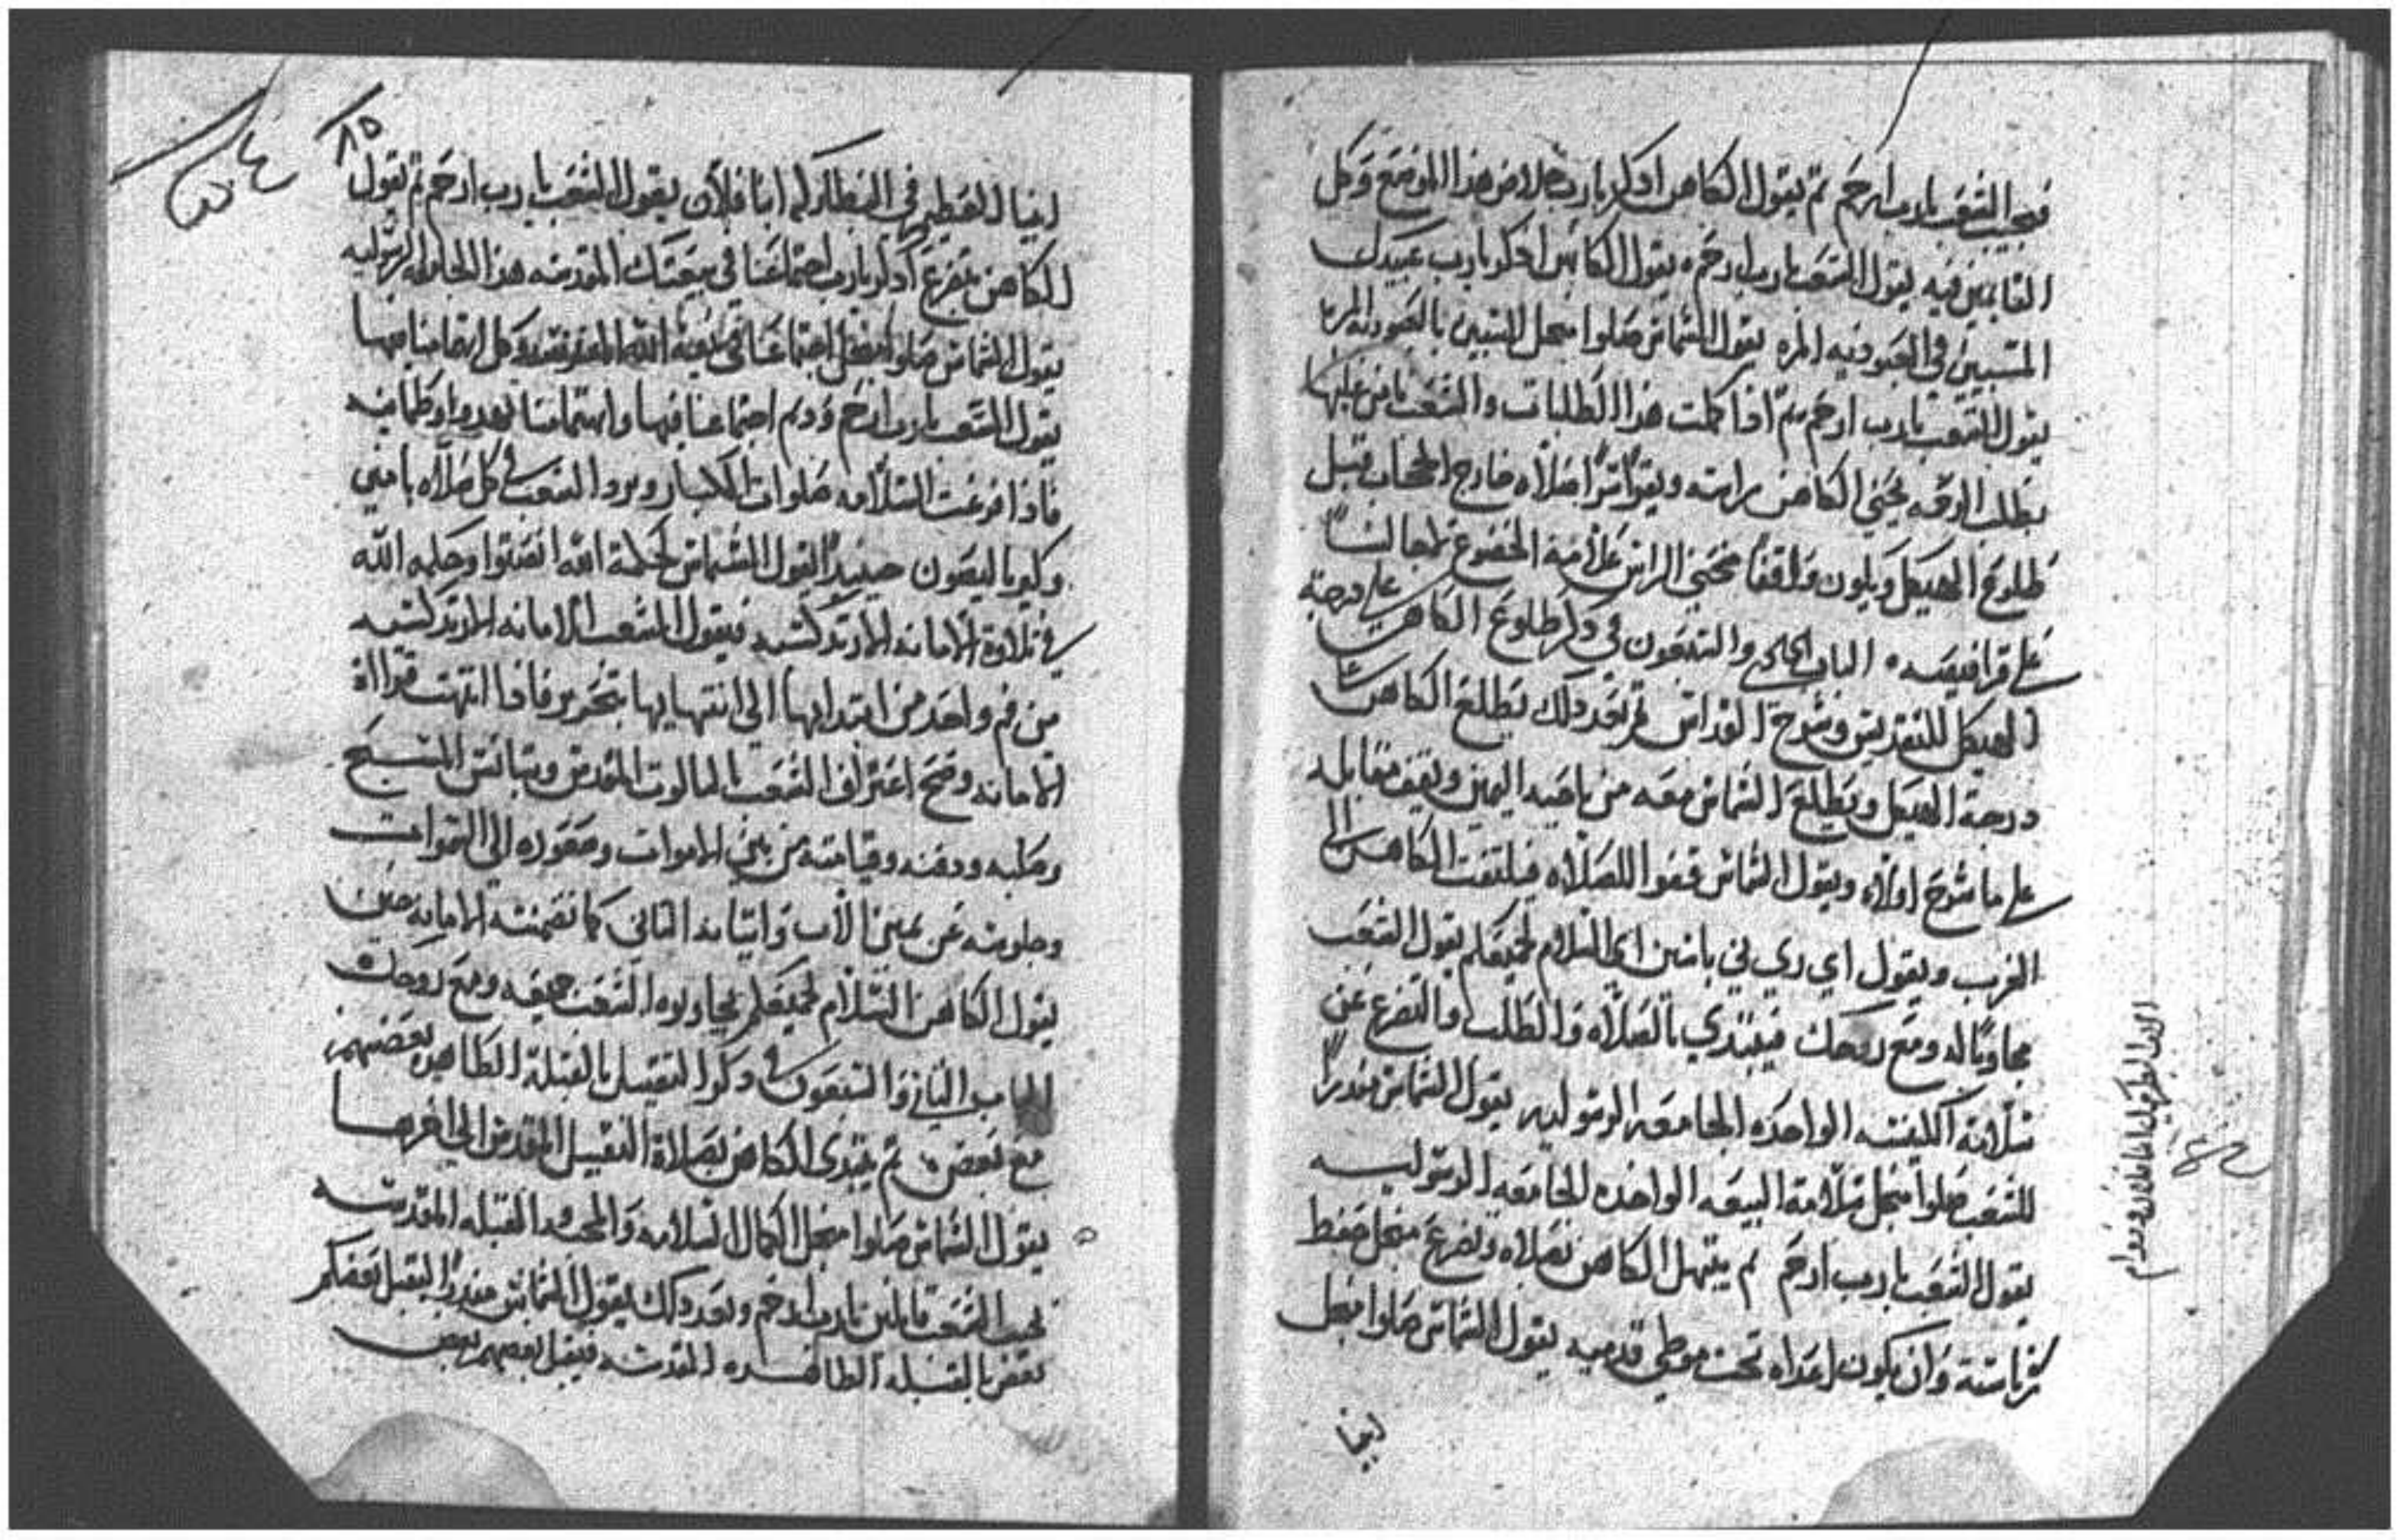 فيجيب الشعب يا رب ارحم ثم يقول الكاهن اذكر يارب خلاص هذا الموضع وكل
القايمين فيه يقول الشعب يا رب ارحم ه يقول الكاهن اذكر يا رب عبيدك
المسبيين في العبوديه المره يقول الشماس صلوا منجل المسبيين بالعبوديه المره
يقول الشعب يا رب ارحم ثم اذا كملت هذا الطلبات والشعب يامن عليها
يطلب الرحمه يحني الكاهن راسه ويقرا سرا صلاه خارج الحجاب قبل
طلوع الهيكل ويكون واقفا محني الراس علامة الخضوع
على قرافيصه ه الباب والتسعون في ذكر طلوع الكاهن على درجة
الهيكل للتقديس وشرح القداس ثم بعد ذلك يطلع الكاهن على
درجة الهيكل ويطلع الشماس معه من ناحية اليمين ويقف مقابله
على ما شرح اولاه ويقول الشماس قفوا للصلاه فيلتفت الكاهن الى
الغرب ويقول اي ري ني باسين اي السلام لجميعكم يقول الشعب
مجاوبا له ومع روحك فيبتدي بالصلاه والطلب والتضرع عن
سلامة الكنيسه الواحده الجامعه الرسوليه يقول الشماس منذرا
للشعب صلوا منجل سلامة البيعه الواحده الجامعه الرسوليه
يقول الشعب يا رب ارحم ثم يبتهل الكاهن بصلاه وتضرع منجل حفظ
كرباسته وان يكون اعداه تحت موطي قدميه يقول الشماس صلوا منجل
ابينا
الاب البطريرك انبا فلان ودوام
٨٥
ابينا العظيم في البطاركه انبا فلان يقول الشعب يا رب ارحم ثم يقول
الكاهن بتضرع اذكر يا رب اجتماعنا في بيعتك المقدسه هذا الجامعه الرسوليه
يقول الشماس صلوا منجل اجتماعنا في بيعة الله المقدسه وكل اجتماعنا فيها
يقول الشعب يا رب ارحم ودم اجتماعنا فيها واهتمامنا بهدو وطمانينه
فاذا فرغت السلامه صلوات الكبار ويرد الشعب في كل صلاه بامين
وكيرياليصون حينيذا يقول الشماس لحكمة الله انصتوا وحكمه الله
في تلاوة الامانه الارتدكسيه فيقول الشعب الامانه الارتدكسيه
من فم واحد من ابتدايها الى انتهايها بتحرير فاذا انتهت قرااة
الامانه وصح اعتراف الشعب بالثالوت المقدس وبتانس المسيح
وصلبه ودفنه وقيامته من بين الاموات وصعوده الى السموات
وجلوسه عن يمين الاب واتيانه الثاني كما تضمنته الامانه حينيذ
يقول الكاهن السلام لجميعكم يجاوبوه الشعب جميعه ومع روحك ه
الباب الثاني والتسعون في ذكر التقبيل بالقبلة الطاهره بعضهم
مع بعض ه ثم يبتدى الكاهن بصلاة التقبيل المقدس الى اخرها
يقول الشماس صلوا منجل الكمال السلامه والمحبه والقبله المقدسه
يجيب الشعب قايلين يا رب ارحم وبعد ذلك يقول الشماس منذرا ليقبل بعضكم
بعض بالقبله الطاهره المقدسه فيقبل بعضهم بعض